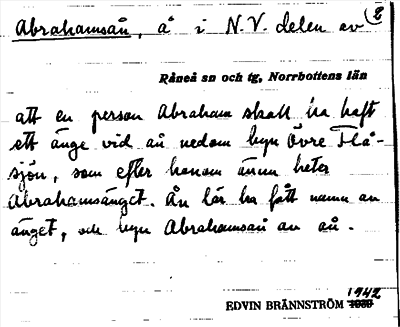 Abrahamsån, å i N.V. delen av (2
Råneå sn och tg, Norrbottens län
att en person Abraham skall ha haft
ett änge vid ån nedom byn Övre Flå-
sjön, som efter honom ännu heter
Abrahamsänget. Ån lär ha fått namn av
änget, och byn Abrahamsån av ån.
EDVIN BRÄNNSTRÖM 1942